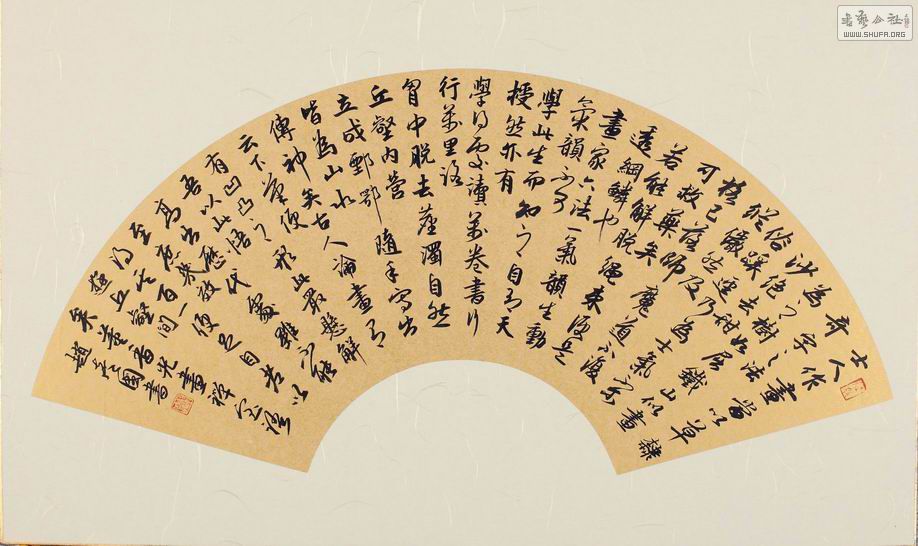 士人作畫當以草隸
奇字之法
為之樹如屈鐵山似畫
沙絕去甜
俗蹊逕乃為士氣
縱儼然及
格已落畫師魔道不復
可救藥矣
若能解脫繩束便是
透網鱗也
畫家六法一氣韻生動
氣韻不可
學此生而知之自有天
授然亦有
學得處讀萬卷書行
萬里路
胸中脫去塵濁自然
丘壑內營
立成鄄鄂隨手寫出
皆為山水
傳神矣古人論畫有
云下筆便
有凹凸之形此最懸解
吾以此悟
高出歷代處雖不能
至庶幾效
得其百一便足自老以
遊丘壑間
矣董香光畫禪室隨筆
趙國書
WWW.SHUFA.ORG